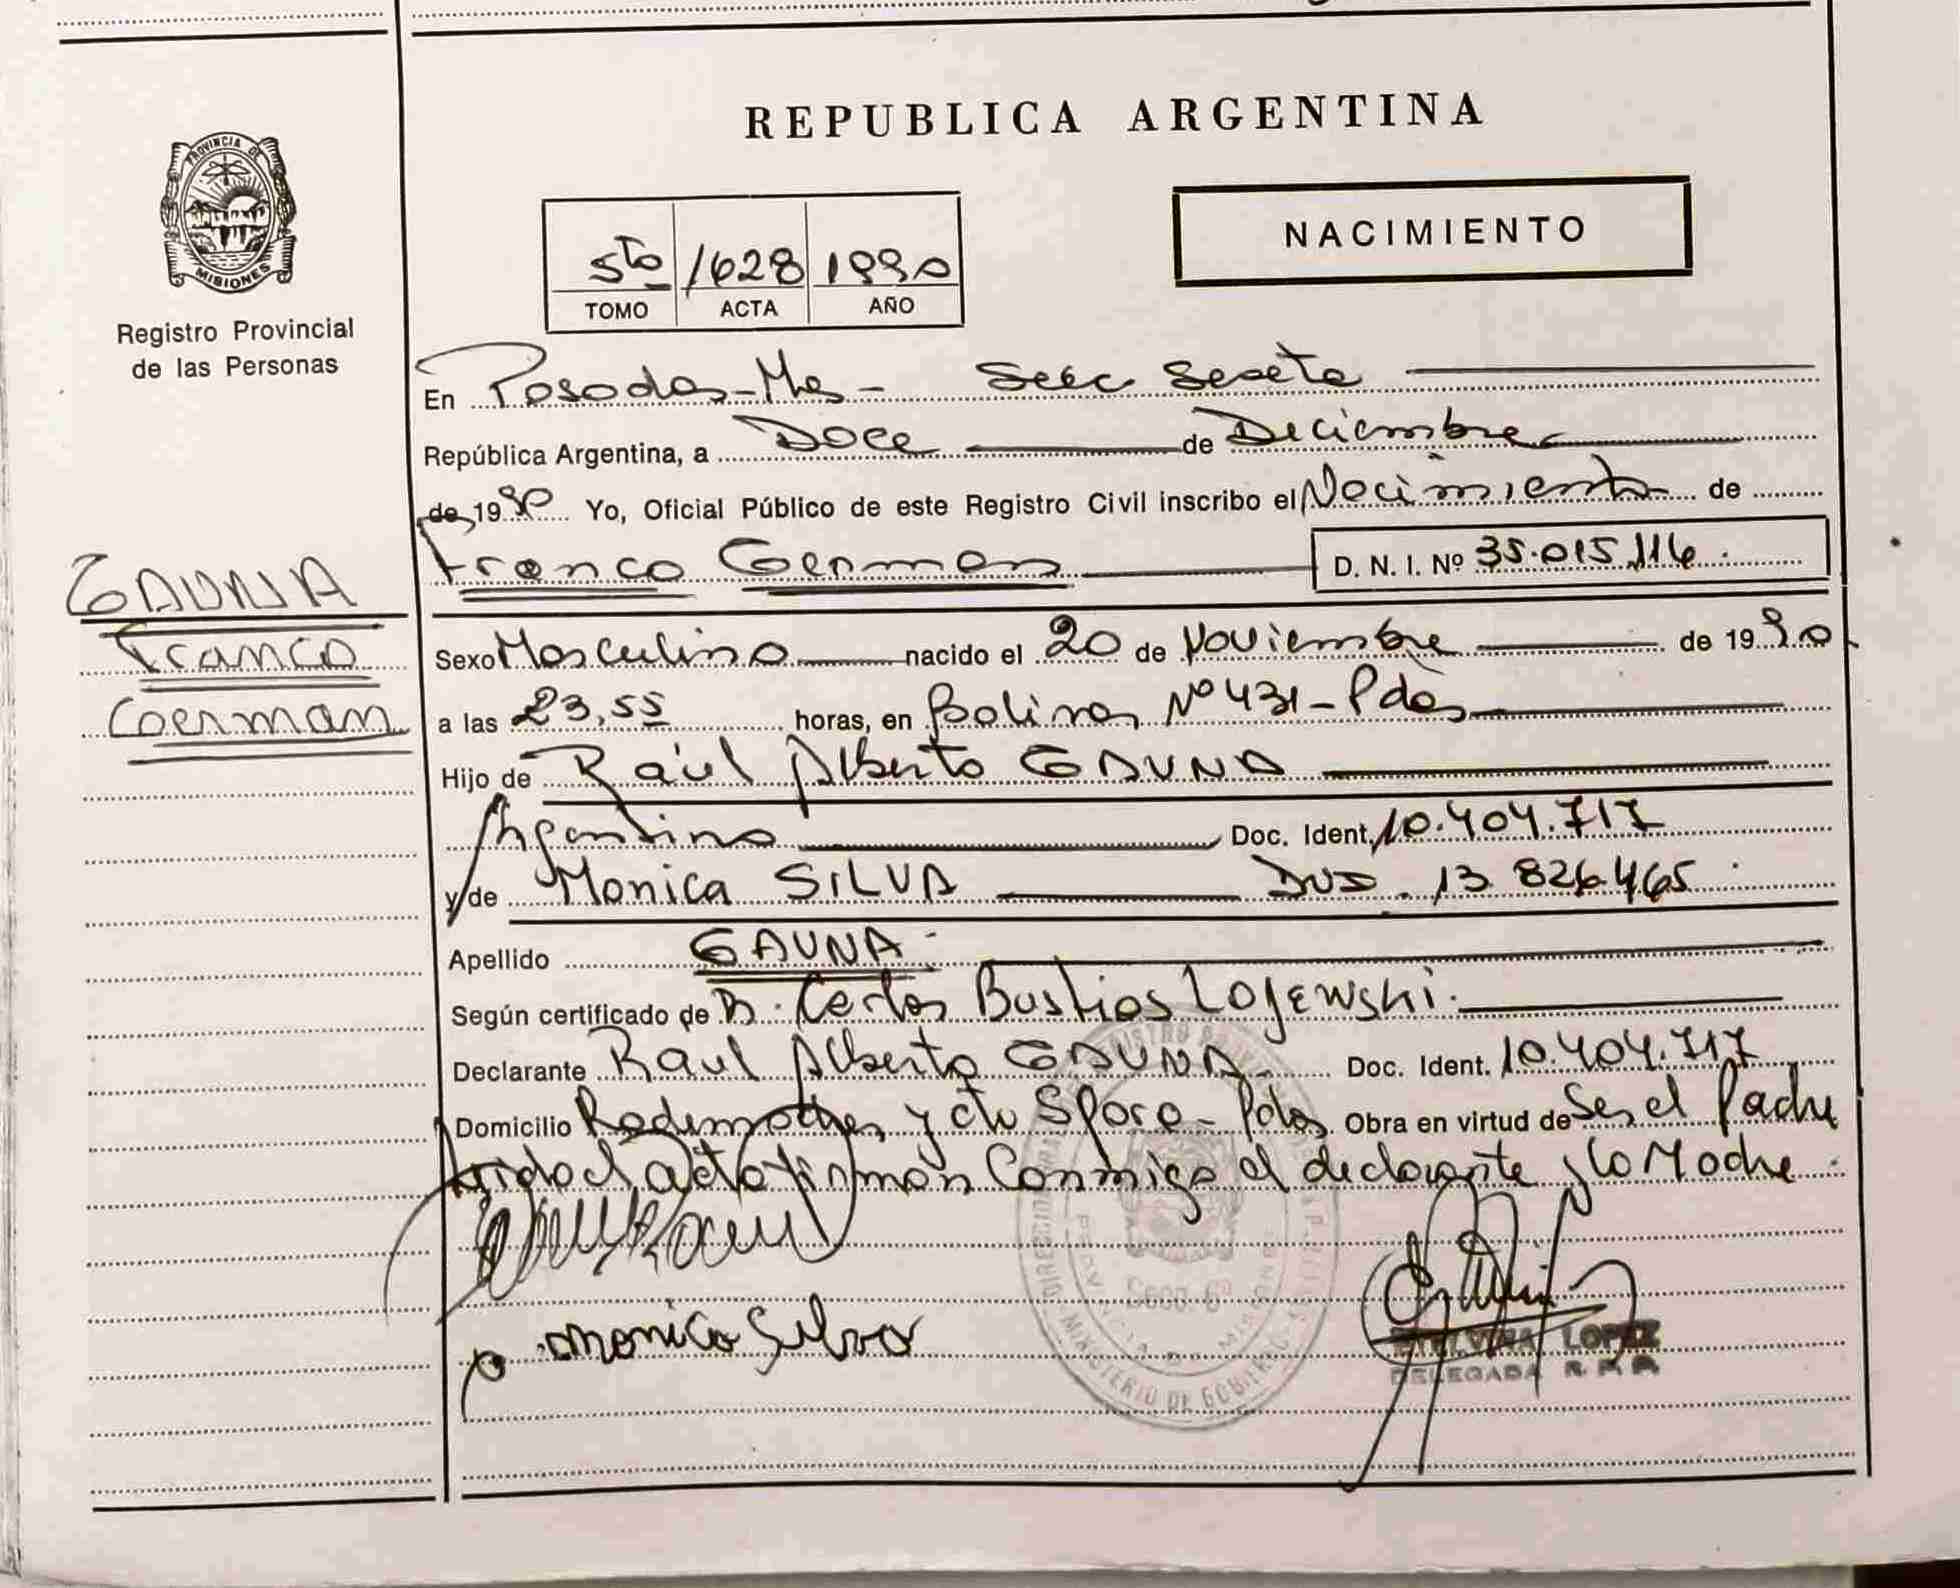 REPUBLICA ARGENTINA
NACIMIENTO
PROVINCIA DE
MISIONES
Registro Provincial
de las Personas
5to 1628 1990
TOMO ACTA AÑO
En Posadas-Mns- Secc Sexta
República Argentina, a Doce de Diciembre
de 1990 Yo, Oficial Público de este Registro Civil inscribo el Nacimiento de
Franco German D. N. I. Nº 35.015.116.
GAUNA
Franco
German
Sexo Masculino nacido el 20 de Noviembre de 1990
a las 23,55 horas, en Bolivar Nº 431-Pdas
Hijo de Raúl Alberto GAUNA
Argentino Doc. Ident. 10.404.717
y de Monica SILVA 13.826.465
Apellido GAUNA.
Según certificado de Dr. Carlos Bustios Lojewski.
Declarante Raul Alberto GAUNA Doc. Ident. 10.404.717
Domicilio y Pdas Obra en virtud de Ser el Padre
Leido el acta firman Conmigo el declarante y la Madre.
Monica Silva
ETELVINA LOPEZ
DELEGADA R. P. P.
MINISTERIO DE GOBIERNO